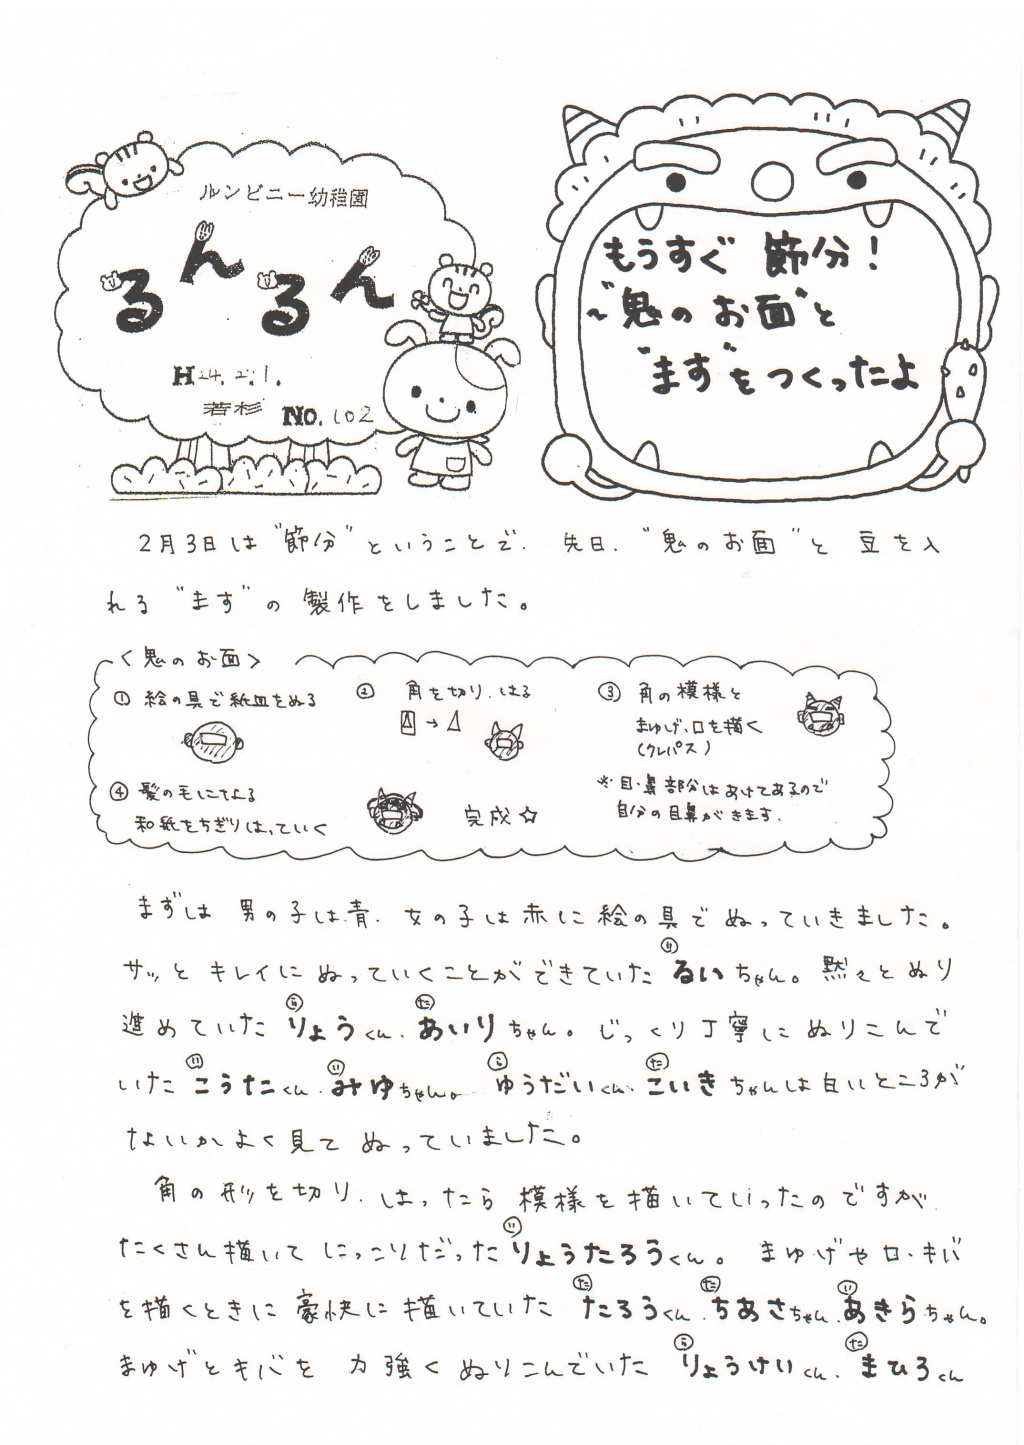 ルンビニー幼稚園
るんるん
H24.2.1.
若杉 No.102
もうすぐ 節分！
～"鬼のお面"と
"ます"をつくったよ
2月3日は"節分"ということで、先日、"鬼のお面"と 豆を入
れる"ます"の 製作をしました。
＜鬼のお面＞
① 絵の具で紙皿をぬる
② 角を切り、はる
③ 角の模様と
まゆげ、口を描く
（クレパス）
※目・鼻部分はあけてあるので
自分の目鼻がきます。
④ 髪の毛にてよる
和紙をちぎりはっていく
完成☆
まずは 男の子は青、女の子は赤に絵の具でぬっていきました。
サッと キレイに ぬっていくことができていた るいちゃん。黙々とぬり
進めていた りょうくん、あいりちゃん。じっくり丁寧にぬりこんで
いた こうたくん、みゆちゃん。ゆうだいくん、こいきちゃんは白いところが
ないかよく見て ぬっていました。
角の形を切り、はったら 模様を描いていったのですが、
たくさん描いて にっこりだった りょうたろうくん。まゆげや口・キバ
を描くときに 豪快に 描いていた たろうくん、ちあさちゃん、あきらちゃん。
まゆげとキバを 力強くぬりこんでいた りょうけいくん、まひろくん